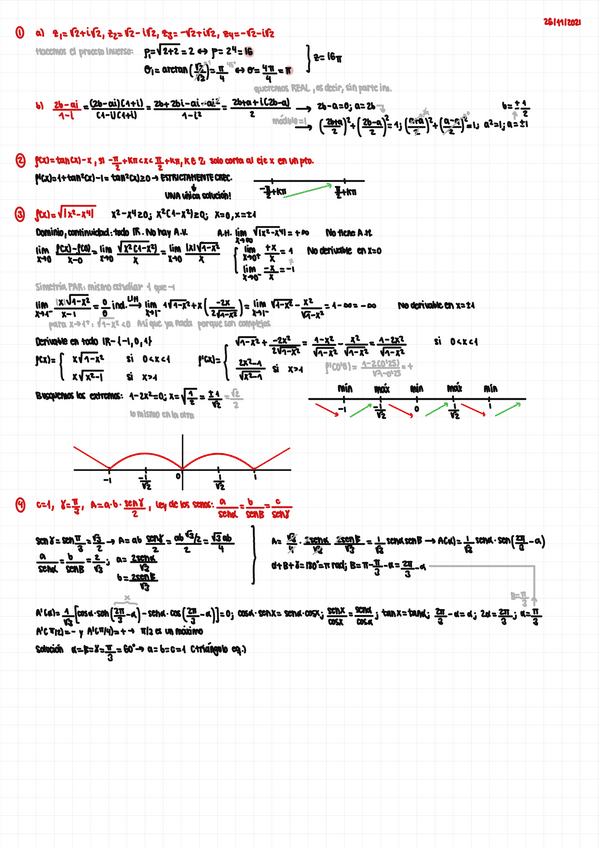 26/11/2021
① a) z₁=√2+i√2, z₂=√2-i√2, z₃=-√2+i√2, z₄=-√2-i√2
Hacemos el proceso inverso: ρ₁=√(2+2)=2 ↔ ρ=2⁴=16
σ₁=arctan(√2/√2)=π/4 ↔ σ=4π/4=π } z=16π
queremos REAL, es decir, sin parte im.
b) (2b-ai)/(1-i)=((2b-ai)(1+i))/((1-i)(1+i))=(2b+2bi-ai-ai²)/(1-i²)=(2b+a+i(2b-a))/2 → 2b-a=0; a=2b b=±1/2
módulo=1 → ((2b+a)/2)²+((2b-a)/2)²=1; ((a+a)/2)²+((a-a)/2)²=1; a²=1; a=±1
② f(x)=tan(x)-x, si -π/2+kπ<x<π/2+kπ, k∈Z solo corta al eje x en un pto.
f'(x)=1+tan²(x)-1=tan²(x)≥0 → ESTRICTAMENTE CREC.
UNA única solución!
-π/2+kπ π/2+kπ
③ f(x)=√|x²-x⁴| x²-x⁴≥0; x²(1-x²)≥0; x=0, x=±1
Dominio, continuidad: todo IR. No hay A.V. A.H. lim x→∞ √|x²-x⁴|=+∞ No tiene A.H.
lim x→0 (f(x)-f(0))/(x-0)=lim x→0 √(x²(1-x²))/x=lim x→0 |x|√(1-x²)/x { lim x→0⁺ +x/x=1 No derivable en x=0
lim x→0⁻ -x/x=-1
Simetría PAR: mismo estudiar 1 que -1
lim x→1⁻ |x|√(1-x²)/(x-1)=0/0 ind. L'H→ lim x→1⁻ 1√(1-x²)+x(-2x/(2√(1-x²)))=lim x→1⁻ √(1-x²)-x²/√(1-x²)=1-∞=-∞ No derivable en x=±1
para x→1⁺: √(1-x²)<0 Así que ya nada porque son complejos
Derivable en todo IR-{-1,0,1}
f(x)={ x√(1-x²) si 0<x<1
x√(x²-1) si x>1
f'(x)={ √(1-x²)+(-2x²)/(2√(1-x²))=(1-x²)/√(1-x²)-x²/√(1-x²)=(1-2x²)/√(1-x²) si 0<x<1
(2x²-1)/√(x²-1) si x>1
Busquemos los extremos: 1-2x²=0; x=√(1/2)=±1/√2=√2/2
lo mismo en la otra
mín máx mín máx mín
-1 -1/√2 0 1/√2 1
-1 -1/√2 0 1/√2 1
④ c=1, γ=π/3, A=a·b·senγ/2, ley de los senos: a/senα=b/senβ=c/senγ
senγ=sen π/3=√3/2 → A=ab senγ/2=ab √3/2/2=√3ab/4
a/senα=b/senβ=2/√3; a=2senα/√3
b=2senβ/√3
A=√3/4·2senα/√3·2senβ/√3=1/√3 senα senβ → A(α)=1/√3 senα·sen(2π/3-α)
α+β+γ=180°=π rad; β=π-π/3-α=2π/3-α
β=π/3
A'(α)=1/√3[cosα·sen(2π/3-α)-senα·cos(2π/3-α)]=0; cosα·senx=senα·cosx; senx/cosx=senα/cosα; tanx=tanα; 2π/3-α=α; 2α=2π/3; α=π/3
A'(π/2)=- y A'(π/4)=+ → π/2 es un máximo
Solución α=β=γ=π/3=60° → a=b=c=1 (triángulo eq.)